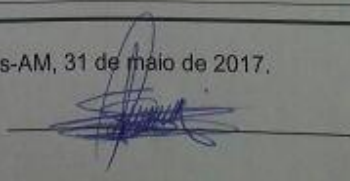 s-AM, 31 de maio de 2017.